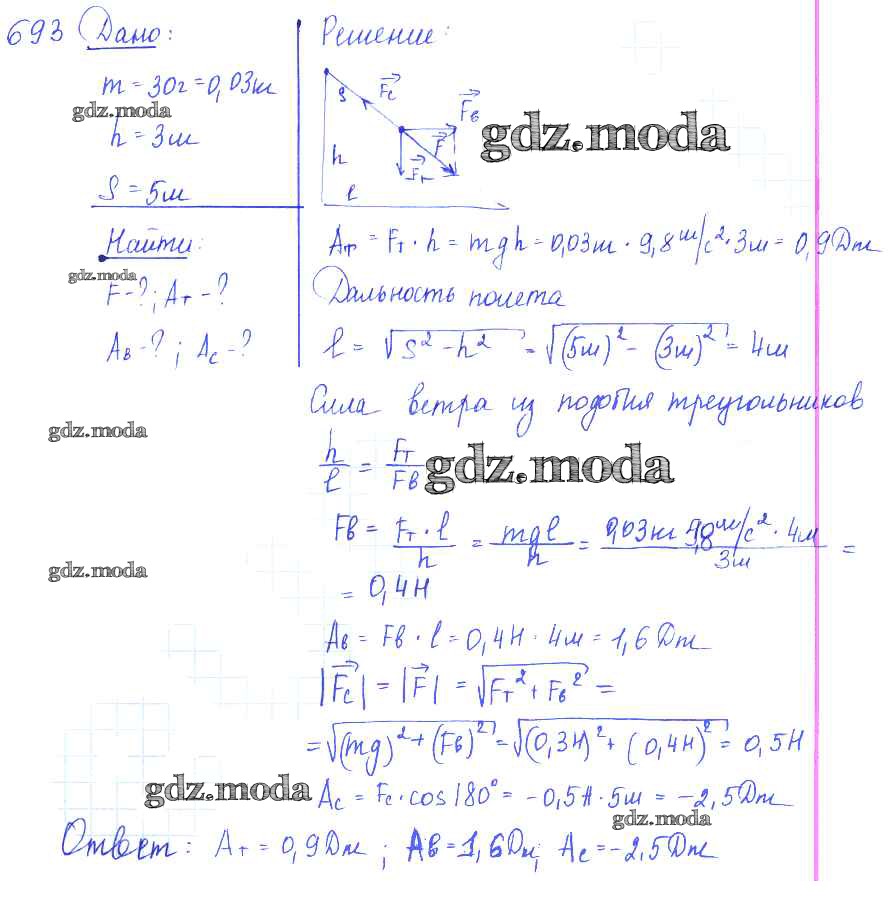 693 Дано:
m = 30г = 0,03кг
gdz.moda
h = 3м
S = 5м
Найти:
gdz.moda
F - ?; Aт - ?
Aв - ?; Ac - ?
Решение:
S Fc
Fв
gdz.moda
h F
Fт
l
Aт = Fт · h = mgh = 0,03кг · 9,8 м/с² · 3м = 0,9 Дж
Дальность полета
l = √(S² - h²) = √((5м)² - (3м)²) = 4м
Сила ветра из подобия треугольников
gdz.moda
h/l = Fт/Fв
gdz.moda
Fв = Fт · l / h = mgl / h = 0,03кг 9,8 м/с² · 4м / 3м =
gdz.moda
= 0,4Н
Aв = Fв · l = 0,4Н · 4м = 1,6 Дж
|Fc| = |F| = √(Fт² + Fв²) =
= √((mg)² + (Fв)²) = √((0,3Н)² + (0,4Н)²) = 0,5Н
gdz.moda
Ac = Fc · cos 180° = -0,5Н · 5м = -2,5 Дж
gdz.moda
Ответ: Aт = 0,9 Дж; Aв = 1,6 Дж; Ac = -2,5 Дж